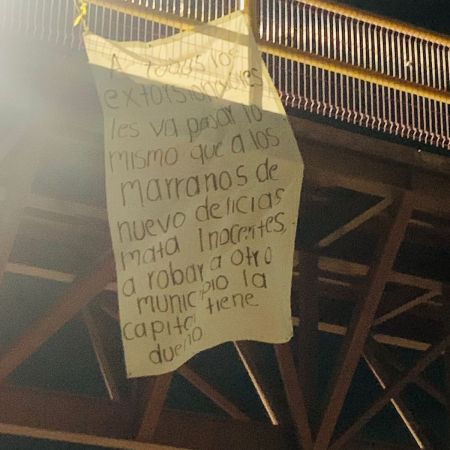 A todos los
extorsionadores
les va pasar lo
mismo que a los
marranos de
nuevo delicias
mata Inocentes,
a robar a otro
municipio la
capital tiene
dueño